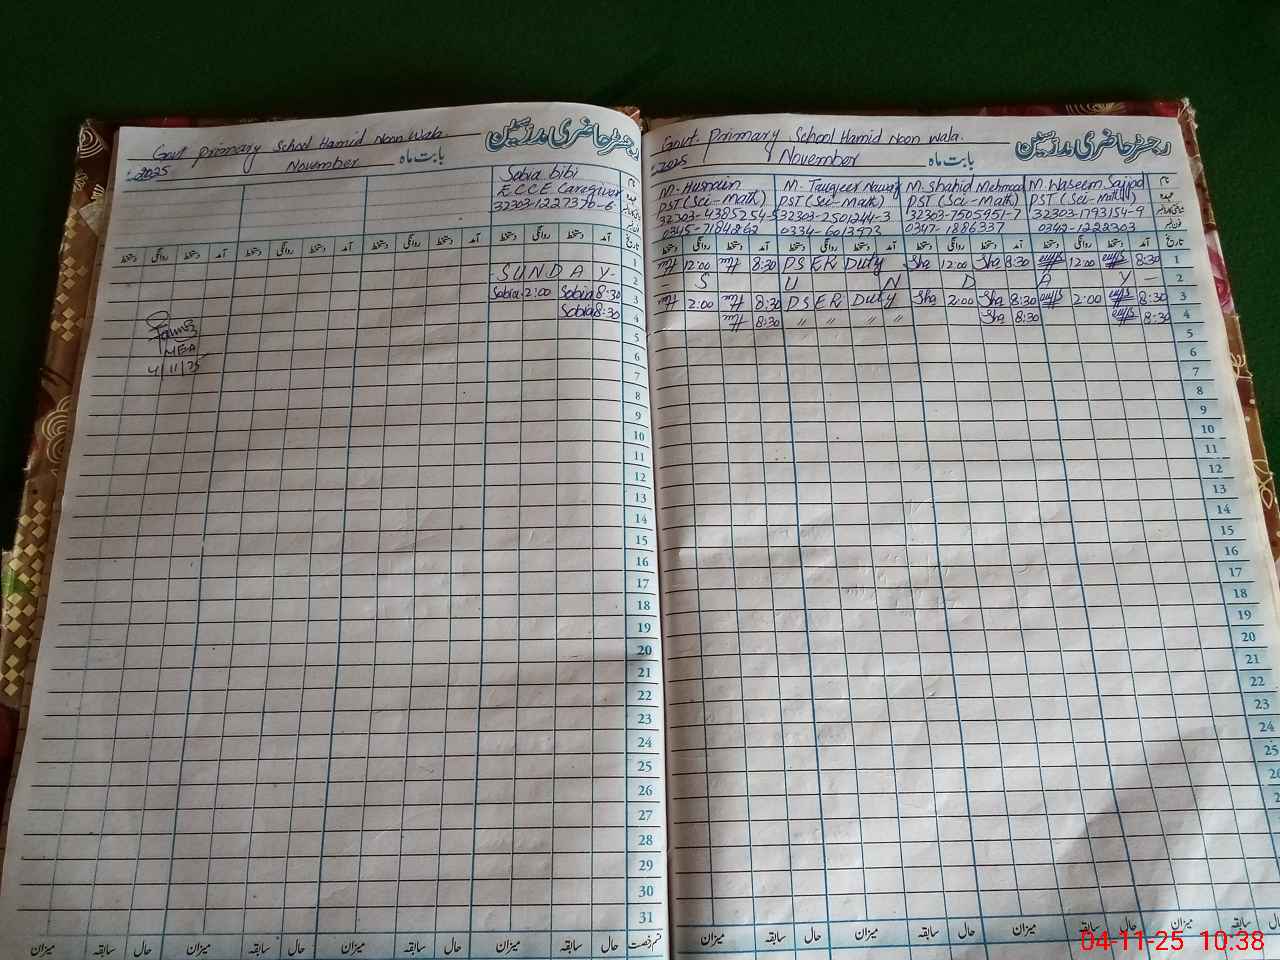 رجسٹر حاضری مدرسین
Govt primary School Hamid Noon Wala.
بابت ماہ November 2025
Sabia bibi
ECCE Caregiver
32303-1227370-6
تاریخ آمد دستخط روانگی دستخط آمد دستخط روانگی دستخط آمد دستخط روانگی دستخط آمد دستخط روانگی دستخط
1
2 - SUNDAY -
3 8:30 Sabia 2:00 Sabia
4 8:30 Sabia
5
6
7
8
9
10
11
12
13
14
15
16
17
18
19
20
21
22
23
24
25
26
27
28
29
30
31
MEA
4/11/25
قسم رخصت حال سابقہ میزان حال سابقہ میزان حال سابقہ میزان حال سابقہ میزان
رجسٹر حاضری مدرسین
Govt. Primary School Hamid Noon Wala.
بابت ماہ November 2025
M. Husnain M. Tauqeer Nawaz M. Shahid Mehmood M. Waseem Sajjad
PST (Sci-Math) PST (Sci-Math) PST (Sci-Math) PST (Sci-Math)
32303-4385254-5 32303-2501244-3 32303-7505951-7 32303-1793154-9
0345-7184862 0334-6013973 0347-1886337 0342-1228303
تاریخ آمد دستخط روانگی دستخط آمد دستخط روانگی دستخط آمد دستخط روانگی دستخط آمد دستخط روانگی دستخط
12:00 8:30 PSER Duty Sha 12:00 Sha 8:30 12:00 8:30 1
- S U N D A Y - 2
2:00 8:30 PSER Duty Sha 2:00 Sha 8:30 2:00 8:30 3
8:30 " " " " Sha 8:30 8:30 4
5
6
7
8
9
10
11
12
13
14
15
16
17
18
19
20
21
22
23
24
25
حال سابقہ میزان حال سابقہ میزان حال سابقہ میزان حال سابقہ میزان
04-11-25 10:38